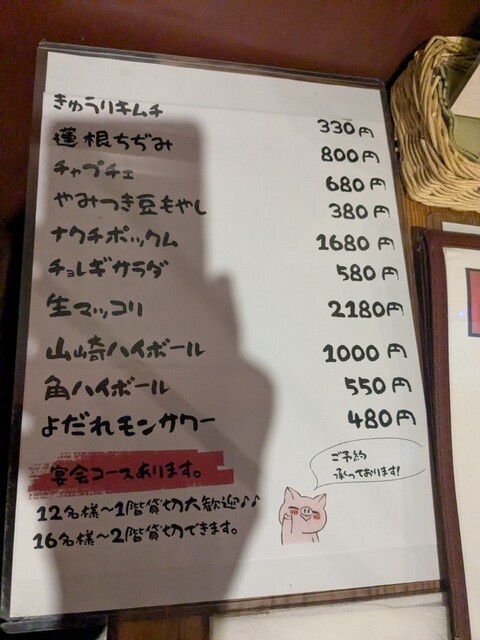 きゅうりキムチ 330円
蓮根ちぢみ 800円
チャプチェ 680円
やみつき豆もやし 380円
ナクチポックム 1680円
チョレギサラダ 580円
生マッコリ 2180円
山崎ハイボール 1000円
角ハイボール 550円
よだれモンサワー 480円
宴会コースあります。
ご予約
承っております!
12名様〜1階貸切大歓迎♪♪
16名様〜2階貸切できます。